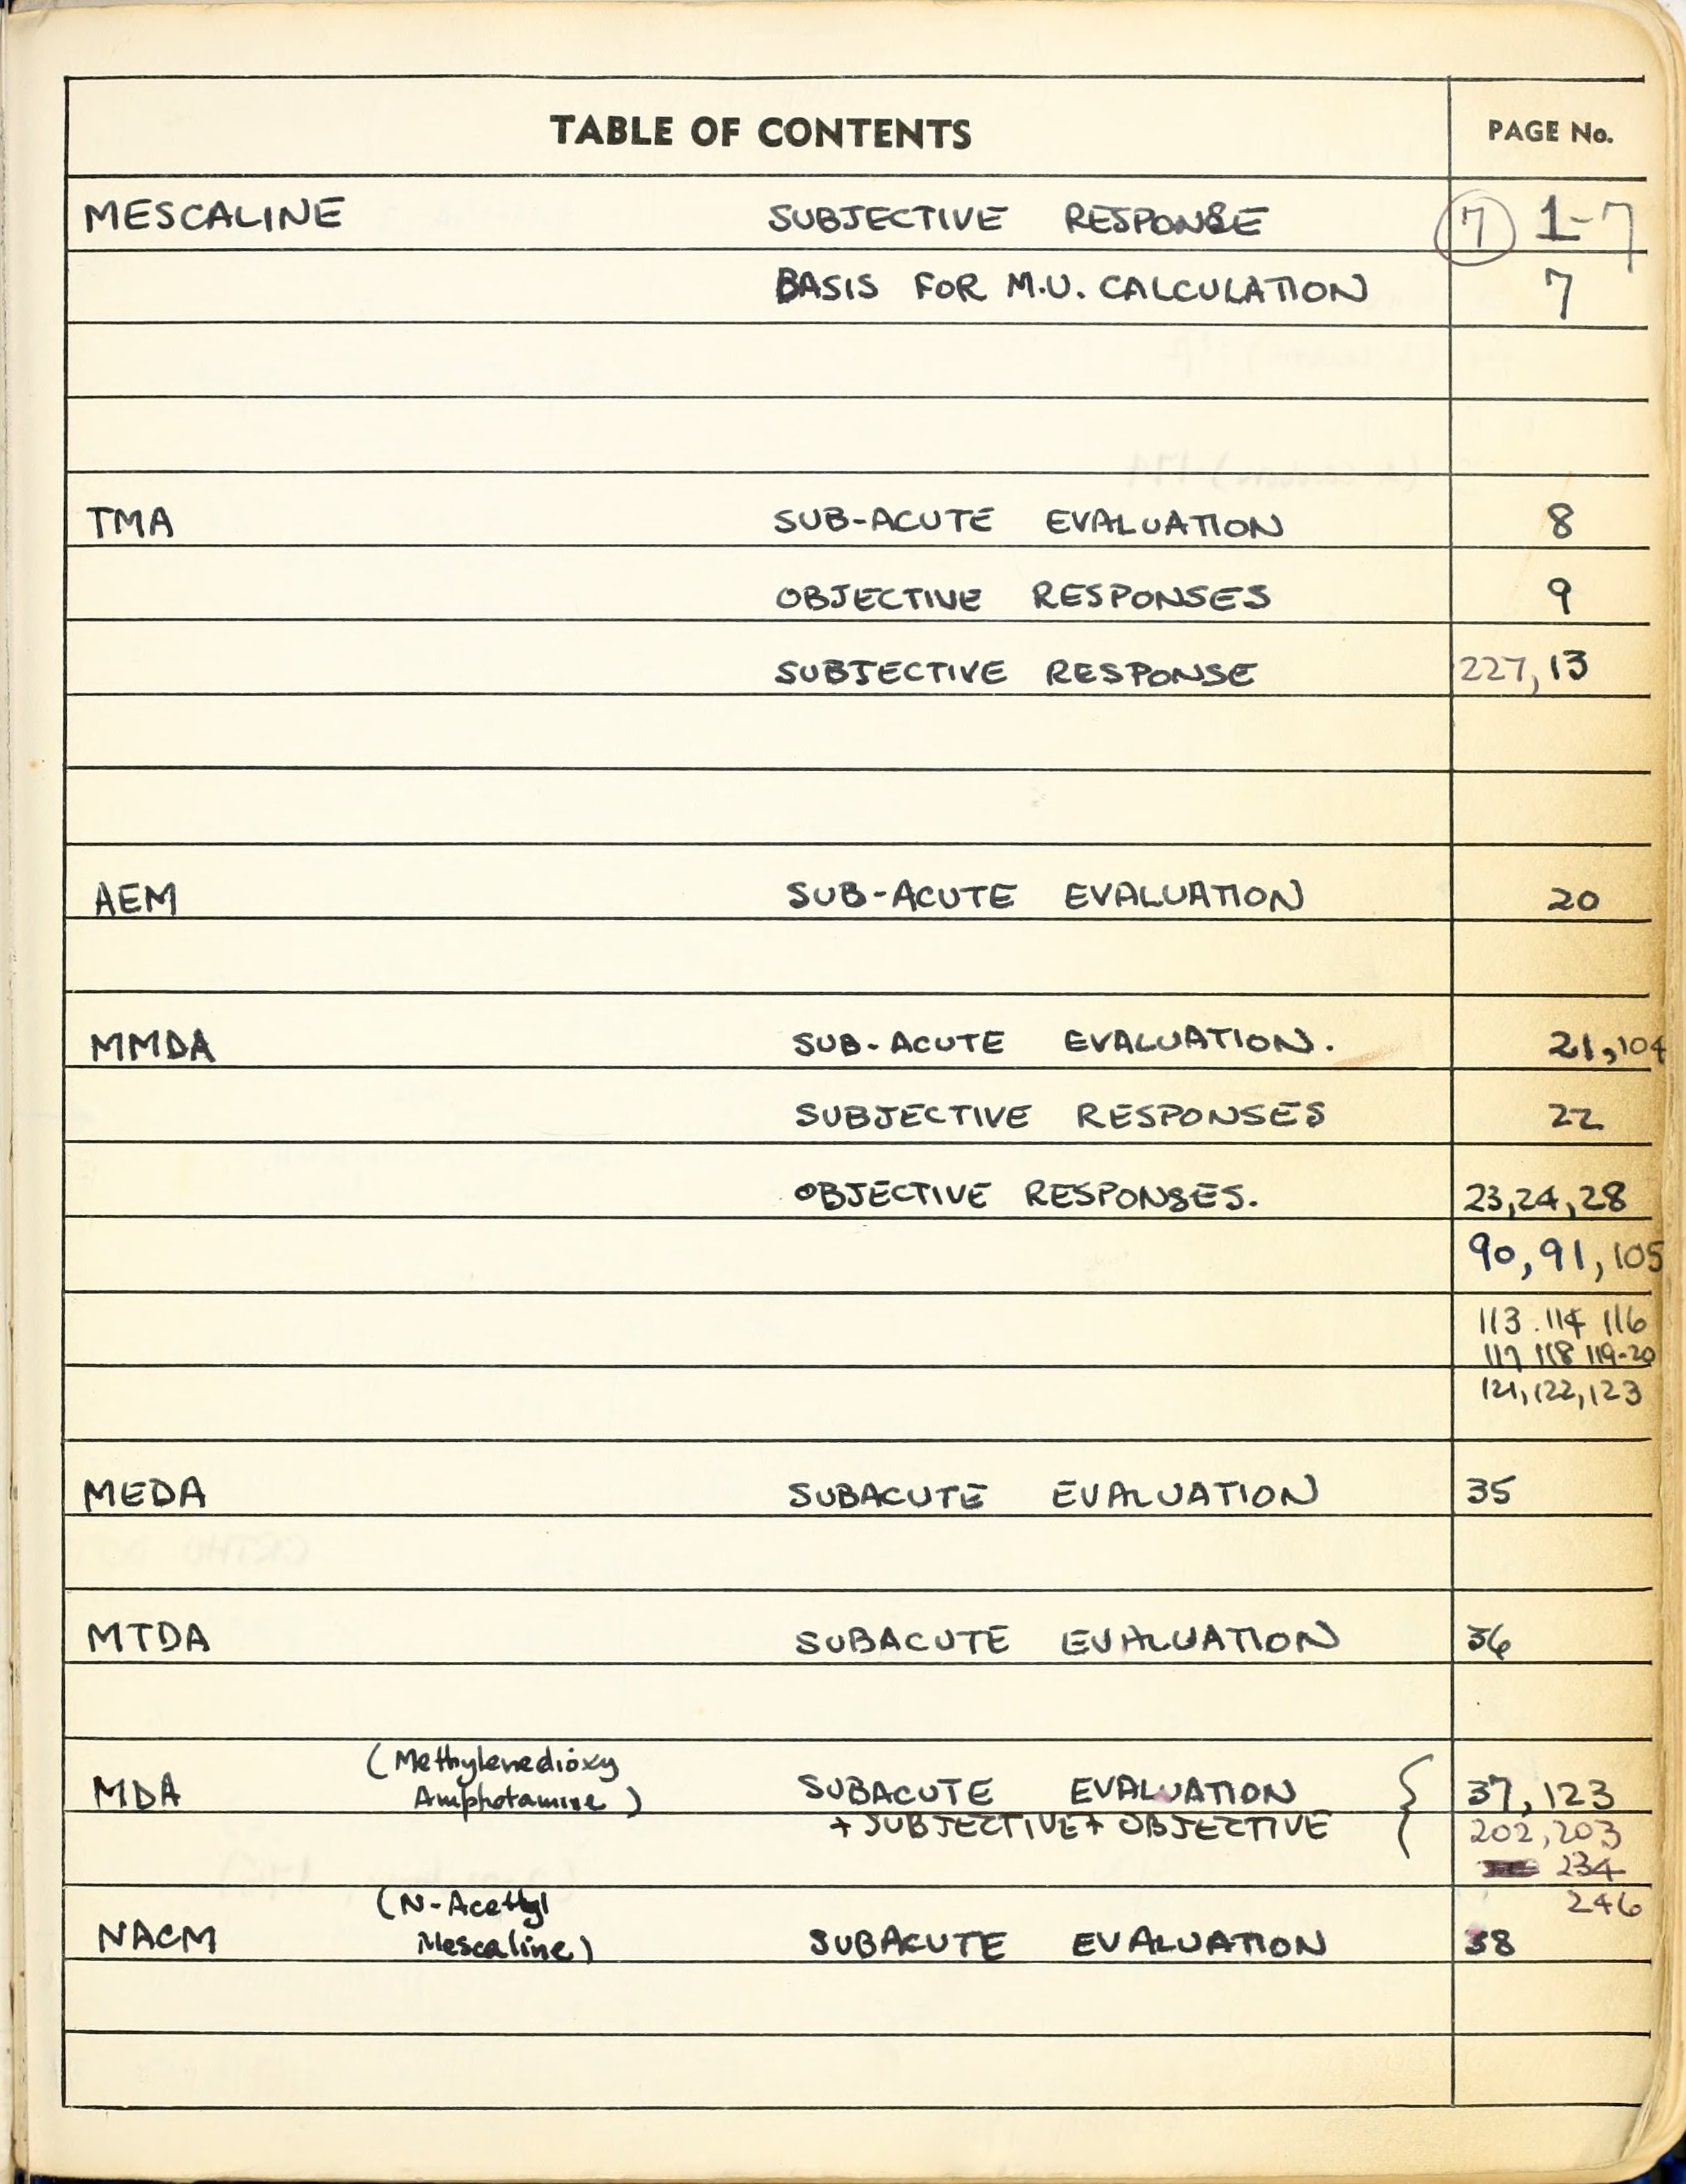 TABLE OF CONTENTS PAGE No.
MESCALINE SUBJECTIVE RESPONSE 7 1-7
BASIS FOR M.U. CALCULATION 7
TMA SUB-ACUTE EVALUATION 8
OBJECTIVE RESPONSES 9
SUBJECTIVE RESPONSE 227, 13
AEM SUB-ACUTE EVALUATION 20
MMDA SUB-ACUTE EVALUATION. 21, 104
SUBJECTIVE RESPONSES 22
OBJECTIVE RESPONSES. 23, 24, 28
90, 91, 105
113. 114 116
117 118 119-20
121, 122, 123
MEDA SUBACUTE EVALUATION 35
MTDA SUBACUTE EVALUATION 36
(Methylenedioxy
MDA Amphetamine) SUBACUTE EVALUATION { 37, 123
+ SUBJECTIVE + OBJECTIVE 202, 203
234
(N-Acetyl 246
NACM Mescaline) SUBACUTE EVALUATION 38